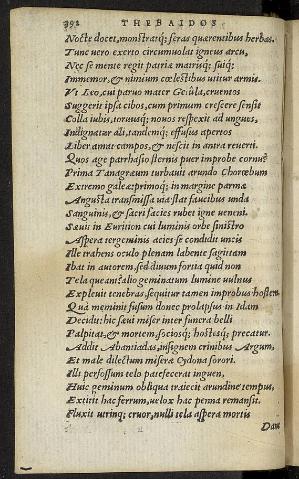 392 THEBAIDOS
Nocte docet, monstratq; feras quærentibus herbas.
Tunc uero exerto circumuolat igneus arcu,
Nec se mente regit patriæ matrisq; suiq;
Immemor, & nimium cœlestibus utitur armis.
Vt Leo, cui paruo mater Getula, cruentos
Suggerit ipsa cibos, cum primum crescere sensit
Colla iubis, toruusq; nouos respexit ad ungues,
Indignatur ali, tandemq; effusus apertos
Liber amat campos, & nescit in antra reuerti.
Quos age parrhasio sternis puer improbe cornu?
Prima Tanagræum turbauit arundo Choræbum
Extremo galeæ primoq; in margine parmæ
Angusta transmissa uia stat faucibus unda
Sanguinis, & sacri facies rubet igne ueneni.
Sæuit in Eurition cui luminis orbe sinistro
Aspera tergeminis acies se condidit uncis
Ille trahens oculo plenam labente sagittam
Ibat in autorem, sed diuum fortia quid non
Tela queant? alio geminatum lumine uulnus
Expleuit tenebras, sequitur tamen improbus hostem
Quà meminit fusum donec prolapsus in Idam
Decidit: hic sæui miser inter funera belli
Palpitat, & mortem, sociosq; hostesq; precatur.
Addit Abantiadas, insignem crinibus Argum,
Et male dilectum miseræ Cydona sorori.
Illi perfossum telo patefecerat inguen,
Huic geminum obliqua traiecit arundine tempus,
Extitit hac ferrum, uelox hac penna remansit.
Fluxit utrinq; cruor, nulli tela aspera mortis
Dant